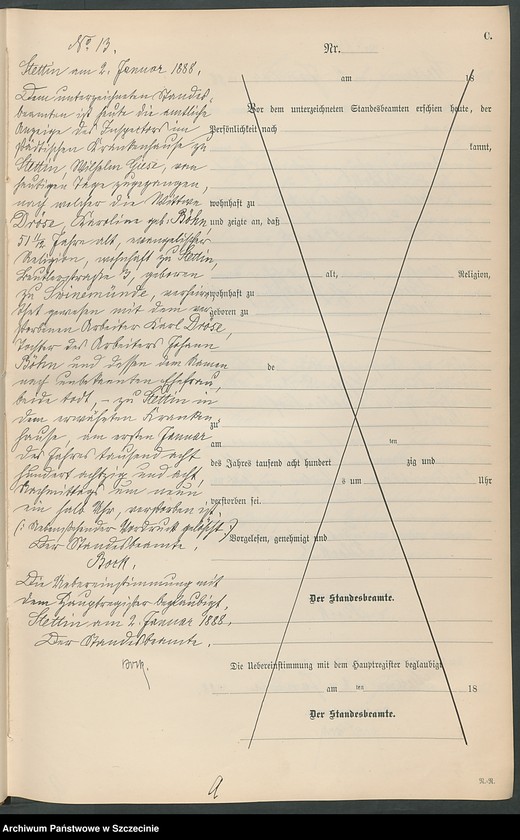 No 13.
Stettin am 2. Januar 1888.
Dem unterzeichneten Standes-
beamten ist heute die amtliche
Anzeige des Inspectors im
städtischen Krankenhause zu
Stettin, Wilhelm Giese, vom
heutigen Tage zugegangen,
nach welcher die Wittwe
Dröse, Karoline geb. Böhn,
51 1/2 Jahre alt, evangelischer
Religion, wohnhaft zu Stettin,
3, geboren
zu Swinemünde, verhei-
rathet gewesen mit dem ver-
storbenen Arbeiter Karl Dröse,
Tochter des Arbeiters Johann
Böhn und dessen dem Namen
nach unbekannten Ehefrau,
beide todt, – zu Stettin in
dem erwähnten Kranken-
hause, am ersten Januar
des Jahres tausend acht
hundert achtzig und acht,
Nachmittags um neun
ein halb Uhr, verstorben ist.
(: Nebenstehender Vordruck gelöscht. :)
Der Standesbeamte.
Bock.
Die Uebereinstimmung mit
dem Hauptregister beglaubigt.
Stettin am 2. Januar 1888.
Der Standesbeamte.
Bock.
C.
Nr.
am 18
Vor dem unterzeichneten Standesbeamten erschien heute, der
Persönlichkeit nach
kannt,
wohnhaft zu
und zeigte an, daß
alt, Religion,
wohnhaft zu
geboren zu
de
zu
am ten
des Jahres tausend acht hundert zig und
s um Uhr
verstorben sei.
Vorgelesen, genehmigt und
Der Standesbeamte.
Die Uebereinstimmung mit dem Hauptregister beglaubigt
am ten 18
Der Standesbeamte.
Archiwum Państwowe w Szczecinie